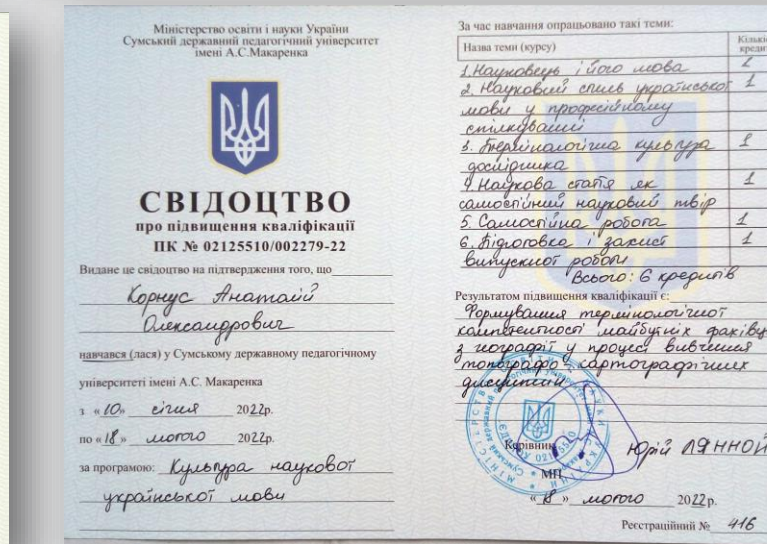 Міністерство освіти і науки України
Сумський державний педагогічний університет
імені А.С.Макаренка
СВІДОЦТВО
про підвищення кваліфікації
ПК № 02125510/002279-22
Видане це свідоцтво на підтвердження того, що
Корнус Анатолій
Олександрович
навчався (лася) у Сумському державному педагогічному
університеті імені А.С. Макаренка
з «10» січня 2022р.
по «18» лютого 2022р.
за програмою: Культура наукової
української мови
За час навчання опрацьовано такі теми:
Назва теми (курсу)
1. Науковець і його мова
2. Науковий стиль української 1
мови у професійному
спілкуванні
3. Термінологічна культура 1
дослідника
4. Наукова стаття як 1
самостійний науковий твір
5. Самостійна робота 1
6. Підготовка і захист 1
випускної роботи
Всього: 6 кредитів
Результатом підвищення кваліфікації є:
Формування термінологічної
компетентності майбутніх фахівц
з географії у процесі вивчення
топографо-картографічних
дисциплін
Керівник Юрій ЛЯННОЙ
МП
«18» лютого 2022р.
Реєстраційний № 416